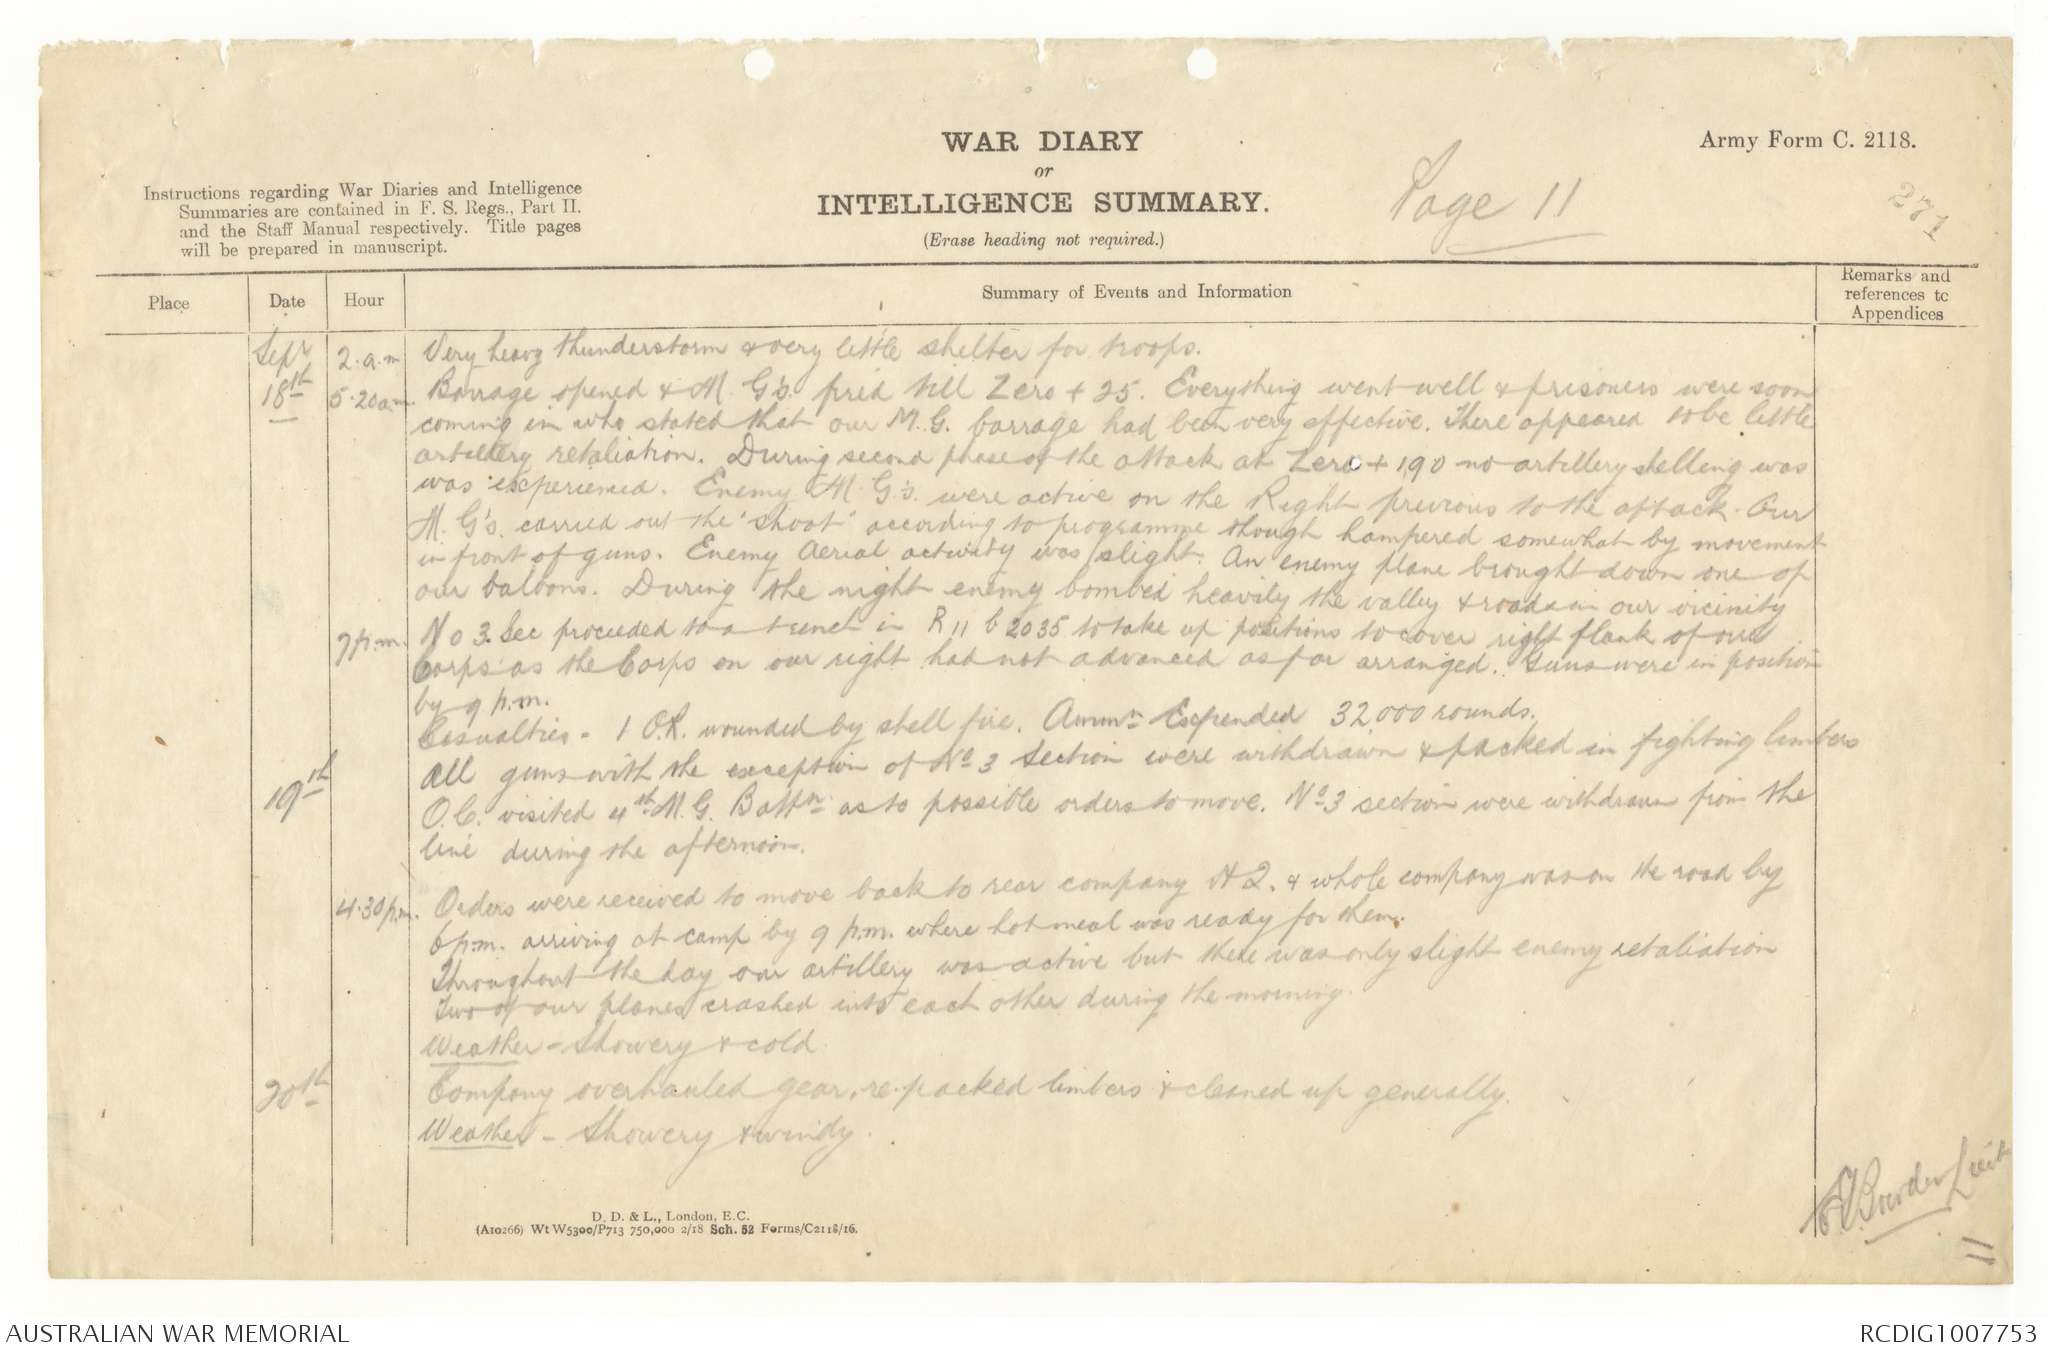 WAR DIARY
or
INTELLIGENCE SUMMARY.
(Erase heading not required.)
Army Form C. 2118.
Page 11
271
Instructions regarding War Diaries and Intelligence
Summaries are contained in F. S. Regs., Part II.
and the Staff Manual respectively. Title pages
will be prepared in manuscript.
Place
Date
Hour
Summary of Events and Information
Remarks and
references to
Appendices
Sept 2.a.m Very heavy thunderstorm & very little shelter for troops.
18th 5.20a.m. Barrage opened & M. G's. fired till Zero + 25. Everything went well & prisoners were soon
coming in who stated that our M.G. barrage had been very effective. There appeared to be little
artillery retaliation. During second phase of the attack at Zero + 190 no artillery shelling was
was experienced. Enemy M. G's. were active on the Right previous to the attack. Our
M. G's. carried out the "shoot" according to programme though hampered somewhat by movement
in front of guns. Enemy Aerial activity was slight. An enemy plane brought down one of
our baloons. During the night enemy bombed heavily the valley & roads in our vicinity
7p.m. No 3. Sec proceeded to a trench in R 11 b 2035 to take up positions to cover right flank of our
Corps as the Corps on our right had not advanced as far arranged. Guns were in position
by 9 p.m.
Casualties - 1 O.R. wounded by shell fire. Ammn Expended 32000 rounds.
19th All guns with the exception of No 3 Section were withdrawn & packed in fighting limbers
O.C. visited 4th M.G. Battn as to possible orders to move. No 3 section were withdrawn from the
line during the afternoon.
4.30p.m. Orders were received to move back to rear company H Q. & whole company was on the road by
6p.m. arriving at camp by 9 p.m. where hot meal was ready for them.
Throughout the day our artillery was active but there was only slight enemy retaliation
Two of our planes crashed into each other during the morning.
Weather - Showery & cold
20th Company overhauled gear, re-packed limbers & cleaned up generally.
Weather - Showery & windy.
Lieut
D. D. & L., London, E.C.
(A10266) Wt W5300/P713 750,000 2/18 Sch. 52 Forms/C2118/16.
AUSTRALIAN WAR MEMORIAL
RCDIG1007753